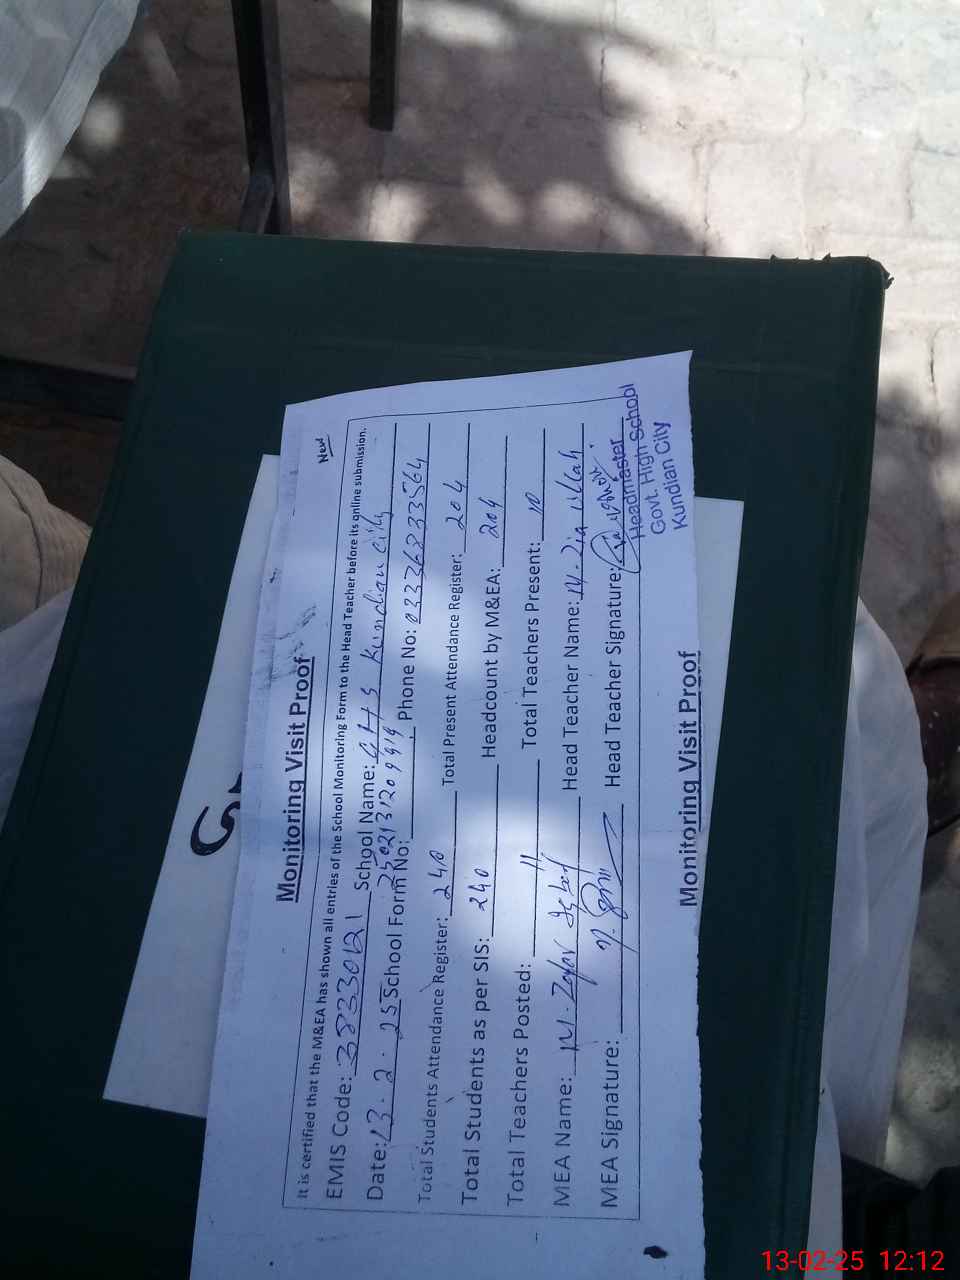 New
Monitoring Visit Proof
It is certified that the M&EA has shown all entries of the School Monitoring Form to the Head Teacher before its online submission.
EMIS Code: 38330121 School Name: GHS Kundian City
Date: 13.2.25 School Form No: Phone No: 03336833564
Total Students Attendance Register: 240 Total Present Attendance Register: 204
Total Students as per SIS: 240 Headcount by M&EA: 204
Total Teachers Posted: 11 Total Teachers Present: 10
MEA Name: M. Zafar Head Teacher Name: M. Zia ullah
MEA Signature: Head Teacher Signature:
Headmaster
Govt. High School
Kundian City
Monitoring Visit Proof
13-02-25 12:12